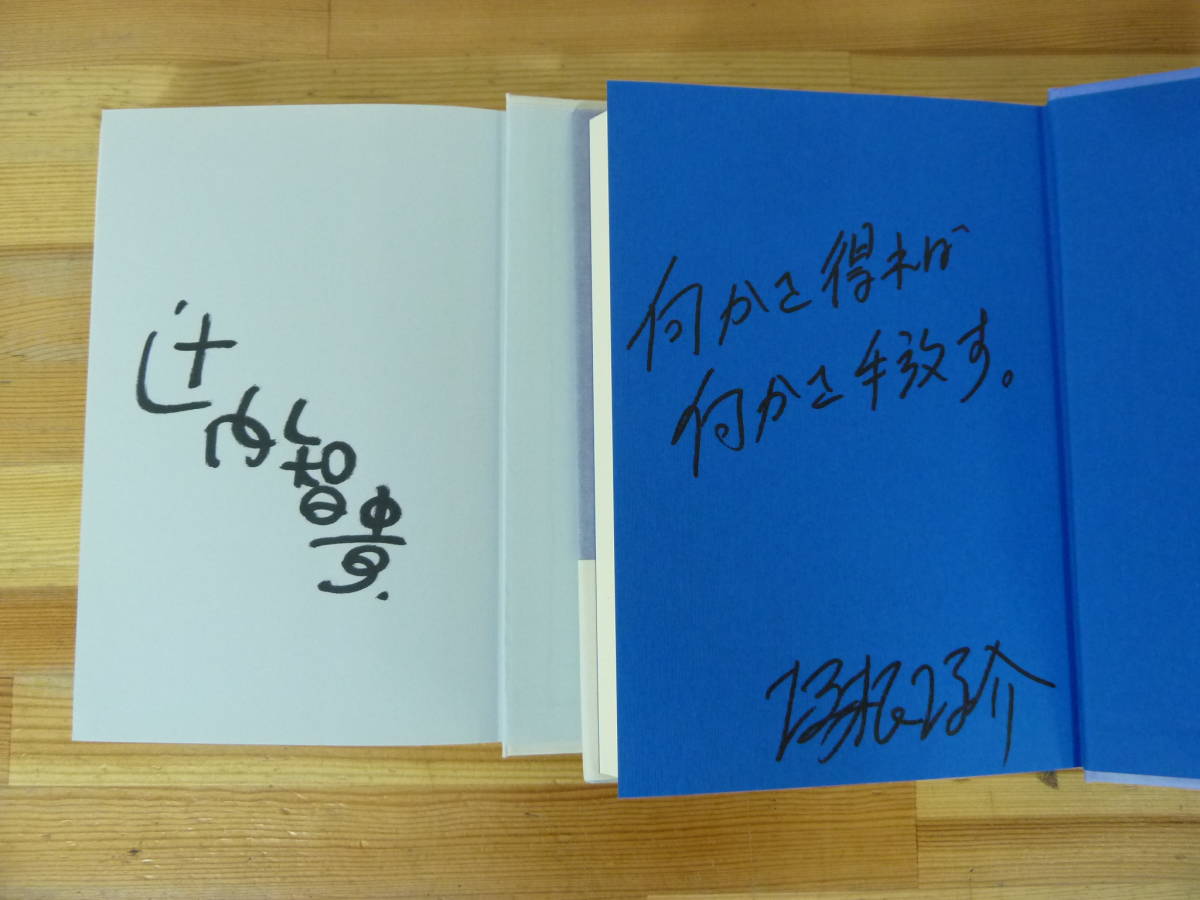 辻内智貴.
何かを得れば
何かを手放す。
垣根涼介